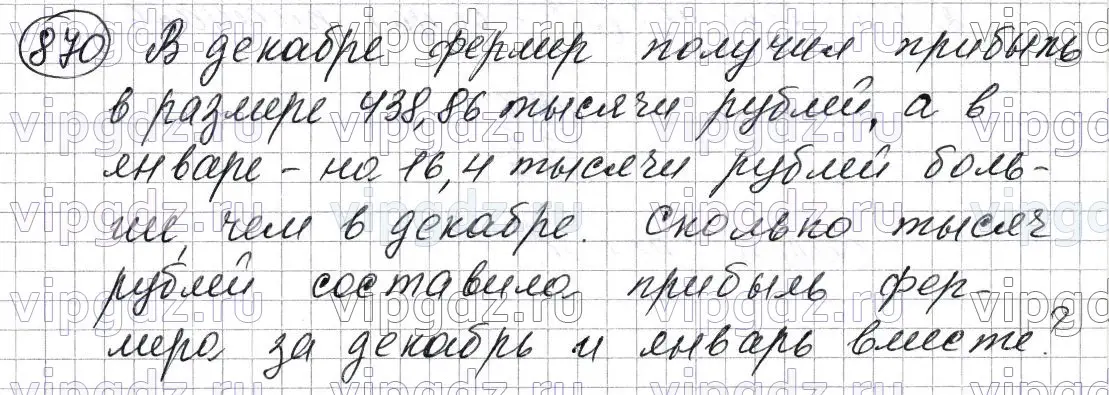 870 В декабре фермер получил прибыль
в размере 438,86 тысячи рублей, а в
январе - на 16,4 тысячи рублей боль-
ше, чем в декабре. Сколько тысяч
рублей составила прибыль фер-
мера за декабрь и январь вместе?